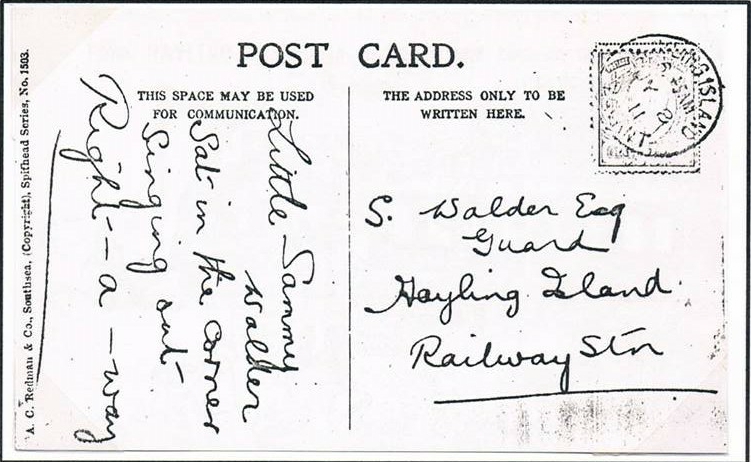 POST CARD.
THIS SPACE MAY BE USED
FOR COMMUNICATION.
THE ADDRESS ONLY TO BE
WRITTEN HERE.
Little Sammy
Walder
Sat in the corner
Singing out
Right - a - way
S. Walder Esq
Guard
Hayling Island
Railway Stn
A. C. Redman & Co., Southsea, (Copyright), Spithead Series, No. 1503.
ISLAND